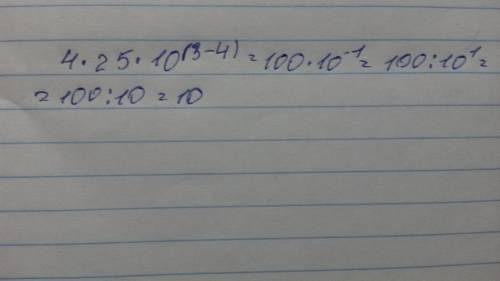 4·25·10⁽³⁻⁴⁾=100·10⁻¹=100:10¹=
=100:10=10